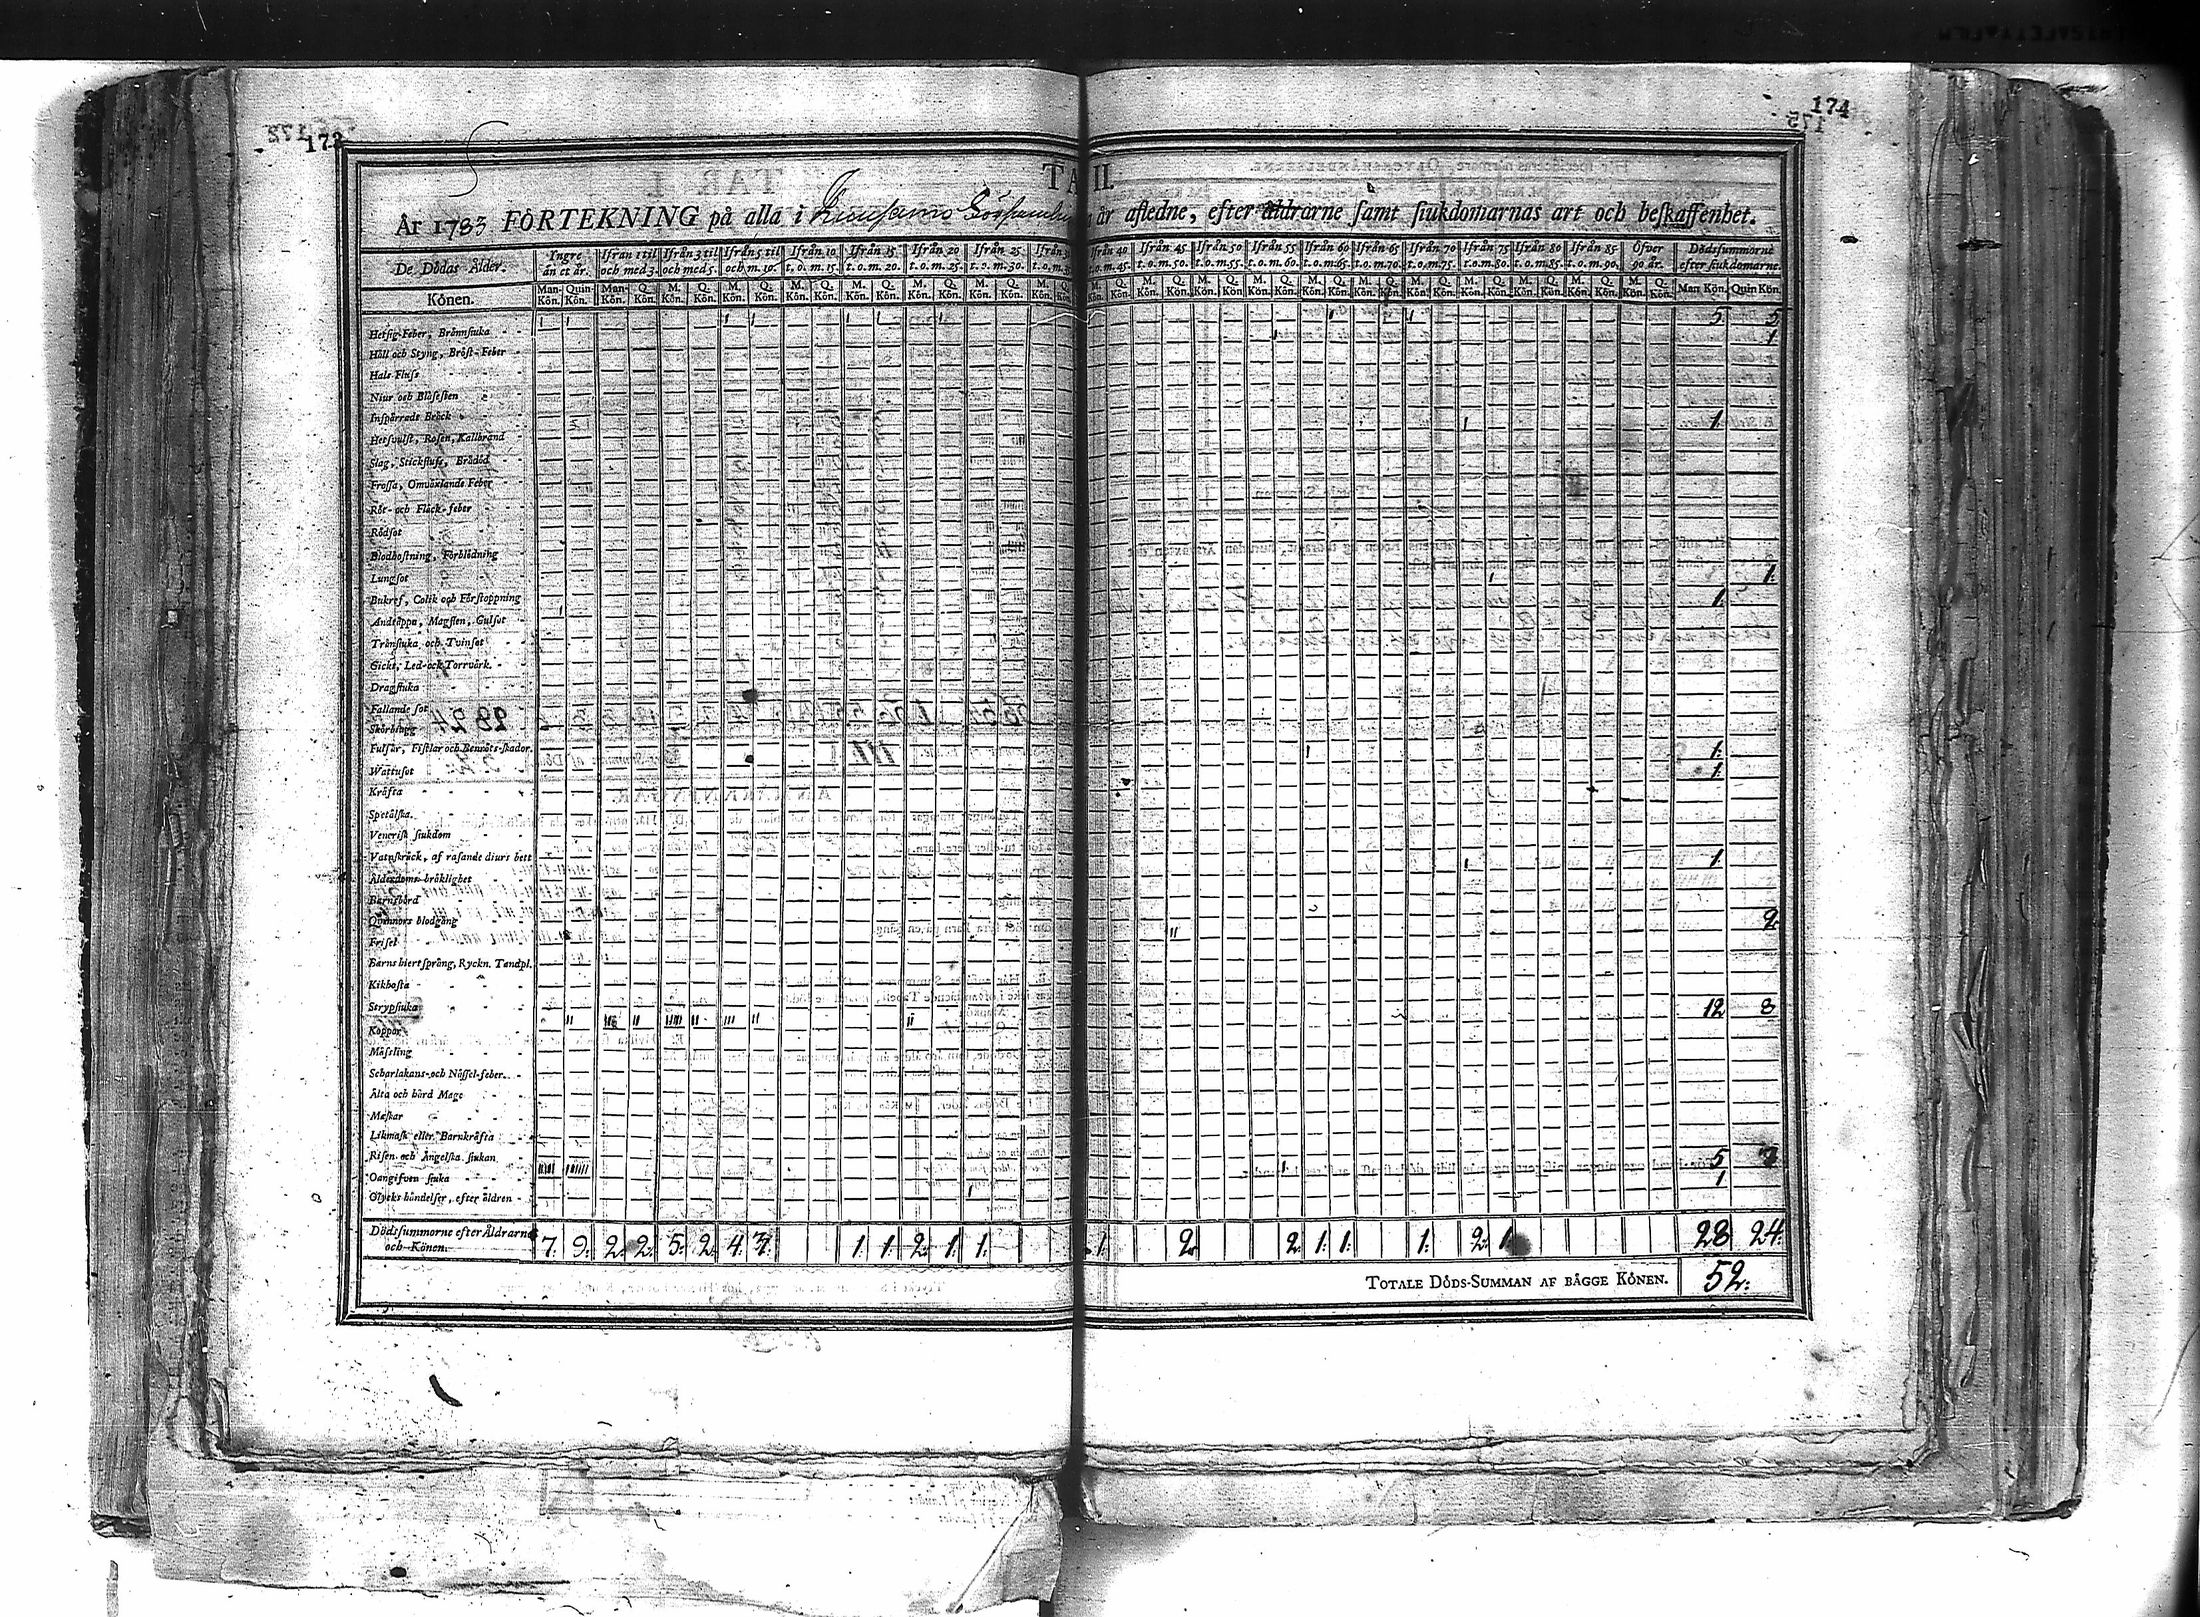 173
174
TA II.
År 1783 FÖRTEKNING på alla i Kuusamo år afledne, efter åldrarne samt siukdomarnas art och beskaffenhet.
De Dödas Ålder. Yngre än et år. Ifrån 1 til och med 3. Ifrån 3 til och med 5. Ifrån 5 til och m. 10. Ifrån 10 t. o. m. 15. Ifrån 15 t. o. m. 20. Ifrån 20 t. o. m. 25. Ifrån 25 t. o. m. 30. Ifrån 40 t. o. m. 45. Ifrån 45 t. o. m. 50. Ifrån 50 t. o. m. 55. Ifrån 55 t. o. m. 60. Ifrån 60 t. o. m. 65. Ifrån 65 t. o. m. 70. Ifrån 70 t. o. m. 75. Ifrån 75 t. o. m. 80. Ifrån 80 t. o. m. 85. Ifrån 85 t. o. m. 90. Öfver 90 år. Dödssummorne efter siukdomarne.
Könen. Man-Kön. Quin-Kön. Man-Kön. Q. Kön. M. Kön. Q. Kön. M. Kön. Q. Kön. M. Kön. Q. Kön. M. Kön. Q. Kön. M. Kön. Q. Kön. M. Kön. Q. Kön. M. Kön. Man Kön. Quin Kön.
Hetsig-Feber, Brännsiuka 1 1 1 1 1 1 1 1 1 5 5
Håll och Styng, Bröst-Feber 1 1
Hals Fluss
Niur och Blåsesten
Inspärrade Bråck
Hetsvulst, Rosen, Kallbrand 1 1.
Slag, Stickfluss, Brådöd
Frossa, Omväxlande Feber
Röt- och Fläck-feber
Rödsot
Blodhostning, Förblödning
Lungsot 1 1.
Bukref, Colik och Förstoppning 1.
Andtäppa, Magsten, Gulsot 1
Tränsiuka och Tvinsot
Gickt, Led- och Torrvärk.
Dragsiuka
Fallande sot
Skörbiugg
Fulsår, Fistlar och Benröts-skador. 1 1.
Wattusot 1.
Kräfta
Spetälska.
Venerisk siukdom
Vatuskräck, af rasande diurs bett 1.
Ålderdoms bräklighet 1
Barnsbörd
Quinnors blodgång 2.
Frisel 11
Barns hiertsprång, Ryckn. Tandpl.
Kikhosta
Strypsiuka 12 8
Koppor 11 11 11 11 111 11 11
Mässling
Scharlakans- och Nässel-feber.
Älta och hård Mage
Maskar
Likmask eller Barnkräfta
Risen och Ängelska siukan 5
Oangifven siuka 1 1
Olyckshändelser, efter åldren 1
Dödssummorne efter Åldrarne och Könen. 7. 9. 2. 2. 5. 2. 4. 1. 1. 2. 1. 1. 1. 2 2. 1. 1. 1. 2. 1. 28 24.
TOTALE DÖDS-SUMMAN AF BÅGGE KÖNEN. 52.